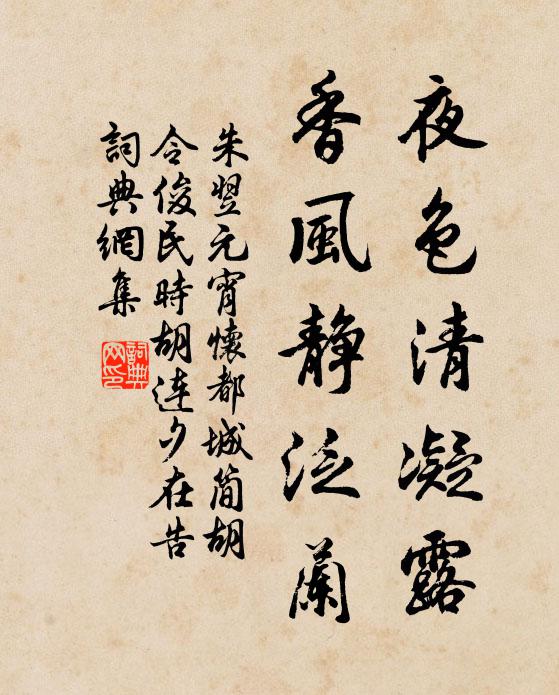 夜色清凝露
香風静泛蘭
朱翌元宵懷都城簡胡
令俊民時胡连夕在告
詞典網集
詞典網印